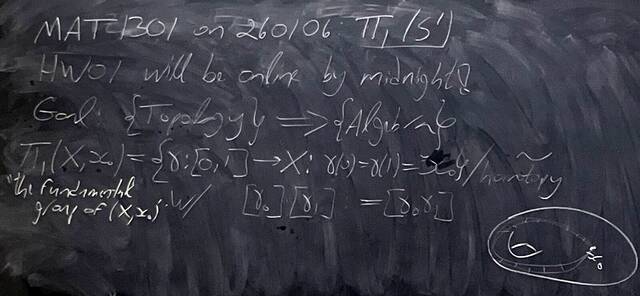 MAT1301 on 260106: π₁(S¹)
HW01 will be online by midnight!
Goal: {Topology} ⟹ {Algebra}
π₁(X,x₀) = {γ:[0,1]→X: γ(0)=γ(1)=x₀}/homotopy ~
"the fundamental group of (X,x₀)" w/ [γ₀][γ₁] = [γ₀γ₁]
x₀